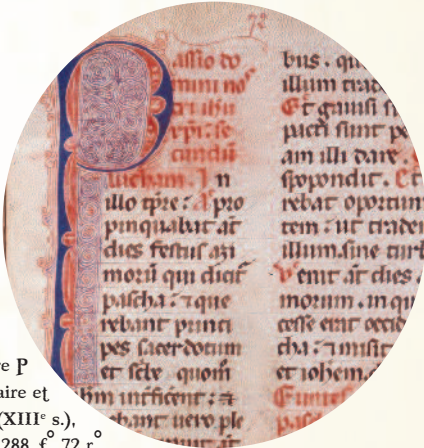 72
Passio do
mini no
ih'u
xpi: se
cundu
lucham. In
illo tpre: Apro
pinquabat at
dies festus azi
moru qui dicit
pascha: 7 que
rebant princi
pes sacerdotum
et scbe quom
ihm intficent: 7
bant uero ple
bus. qu
illum trad
Et gauisi s
pacti sunt pe
am illi dare.
spopondit. Et
rebat oportun
tem: ut trader
illum. sine turb
Venit at dies
morum. in qu
cesse erat occid
cha: 7 misit
et iohem.
Euntes
pasc
re P
aire et
(XIIIe s.),
288, fo 72 ro